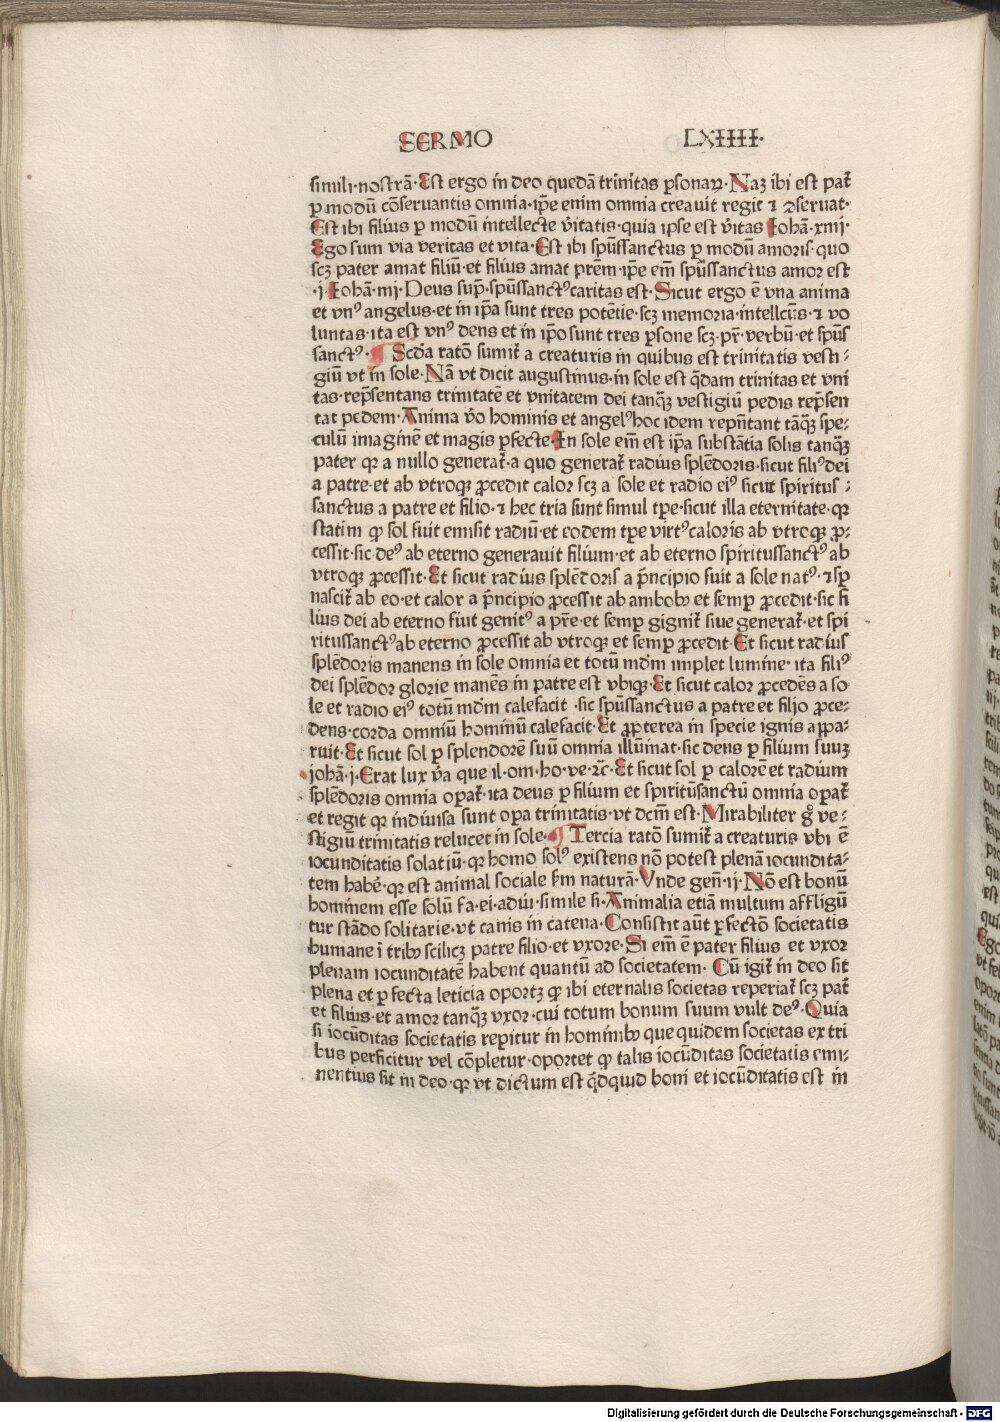 SERMO LXIIII·
simili·nostrā·Est ergo in deo quedā trinitas ꝑsonaꝝ·Naʒ ibi est pať
ꝑ modū cōseruantis omnia·ip̄e enim omnia creauit regit ⁊ ↄseruat·
Est ibi filius ꝑ modū intellecte v̄itatis·quia ipse est v̄itas Iohā·xiiij·
Ego sum via veritas et vita·Est ibi spūssanctus ꝑ modū amoris·quo
scʒ pater amat filiū·et filius amat prēm·ip̄e em̄ spūssanctus amor est
·j·Iohā·iiij·Deus sup̄·spūssanctꝰ caritas est·Sicut ergo ē vna anima
et vnꝰ angelus·et in ip̄a sunt tres potētie·scʒ memoria·intellcūs·⁊ vo
luntas·ita est vnꝰ deus et in ip̄o sunt tres ꝑsone scʒ·pr̄·verbū·et spūs
sanctꝰ·¶ Scd̄a ratō sumiť a creaturis in quibus est trinitatis vesti⸗
giū vt in sole·Nā vt dicit augustinus·in sole est q̄dam trinitas et vni
tas·rep̄sentans trinitatē et vnitatem dei tanqʒ̄ vestigiū pedis rep̄sen
tat pedem·Anima v̄o hominis et angelꝰ hoc idem rep̄ntant tāqʒ̄ spe⸗
culū imaginē et magis ꝑfecte·In sole em̄ est ip̄a substātia solis tanqʒ̄
pater qꝛ a nullo generať·a quo generať radius splēdoris·sicut filiꝰ dei
a patre·et ab vtroqꝫ ꝓcedit calor scʒ a sole et radio eiꝰ sicut spiritus⸗
sanctus a patre et filio·⁊ hec tria sunt simul tꝑe·sicut illa eternitate·qꝛ
statim ꝙ sol fuit emisit radiū·et eodem tꝑe virtꝰ caloris ab vtroqꝫ ꝓ⸗
cessit·sic deꝰ ab eterno generauit filium·et ab eterno spiritussanctꝰ ab
vtroqꝫ ꝓcessit·Et sicut radius splēdoris a p̄ncipio fuit a sole natꝰ·⁊ sꝑ
nasciť ab eo·et calor a p̄ncipio ꝓcessit ab ambobꝫ et semꝑ ꝓcedit·sic fi
lius dei ab eterno fiut genitꝰ a pr̄e·et semꝑ gigniť siue generať·et spi
ritussanctꝰ ab eterno ꝓcessit ab vtroqꝫ et semꝑ ꝓcedit·Et sicut radius
splēdoris manens in sole omnia et totū mdm̄ implet lumine·ita filiꝰ
dei splēdor glorie manēs in patre est vbiqꝫ·Et sicut calor ꝓcedēs a so
le et radio eiꝰ totū mdm̄ calefacit·sic spūssanctus a patre et filio ꝓce⸗
dens·corda omniū hominū calefacit·Et ꝓpterea in specie ignis appa⸗
ruit·Et sicut sol ꝑ splendorē suū omnia illūinat·sic deus ꝑ filium suuʒ
johā·j·Erat lux v̄a que il·om·ho·ve·⁊c̄·Et sicut sol ꝑ calorē et radium
splēdoris omnia opať·ita deus ꝑ filium et spiritūsanctū omnia opať
et regit qꝛ indiuisa sunt oꝑa trinitatis·vt dcm̄ est·Mirabiliter g̊ ve⸗
stigiū trinitatis relucet in sole·¶ Tercia ratō sumiť a creaturis vbi ē
iocunditatis solatiū·qꝛ homo solꝰ existens nō potest plenā iocundita⸗
tem habē·qꝛ est animal sociale ẜm naturā·Vnde gen̄·ij·Nō est bonū
hominem esse solū fa·ei·adiu·simile si·Animalia etiā multum affligū
tur stādo solitarie·vt canis in catena·Consistit aūt ꝑfectō societatis
humane ī tribꝫ scilicʒ patre filio·et vxore·Si em̄ ē pater filius et vxor
plenam iocunditatē habent quantū ad societatem·Cū igiť in deo sit
plena et ꝑfecta leticia oportʒ ꝙ ibi eternalis societas reperiať scʒ pať
et filius·et amor tanqʒ̄ vxor·cui totum bonum suum vult deꝰ·Quia
si iocūditas societatis reꝑitur in hominibꝫ que quidem societas ex tri
bus perficitur vel cōpletur·oportet ꝙ talis iocūditas societatis emi⸗
nentius sit in deo·qꝛ vt dictum est q̄dquid boni et iocūditatis est in
Digitalisierung gefördert durch die Deutsche Forschungsgemeinschaft - DFG